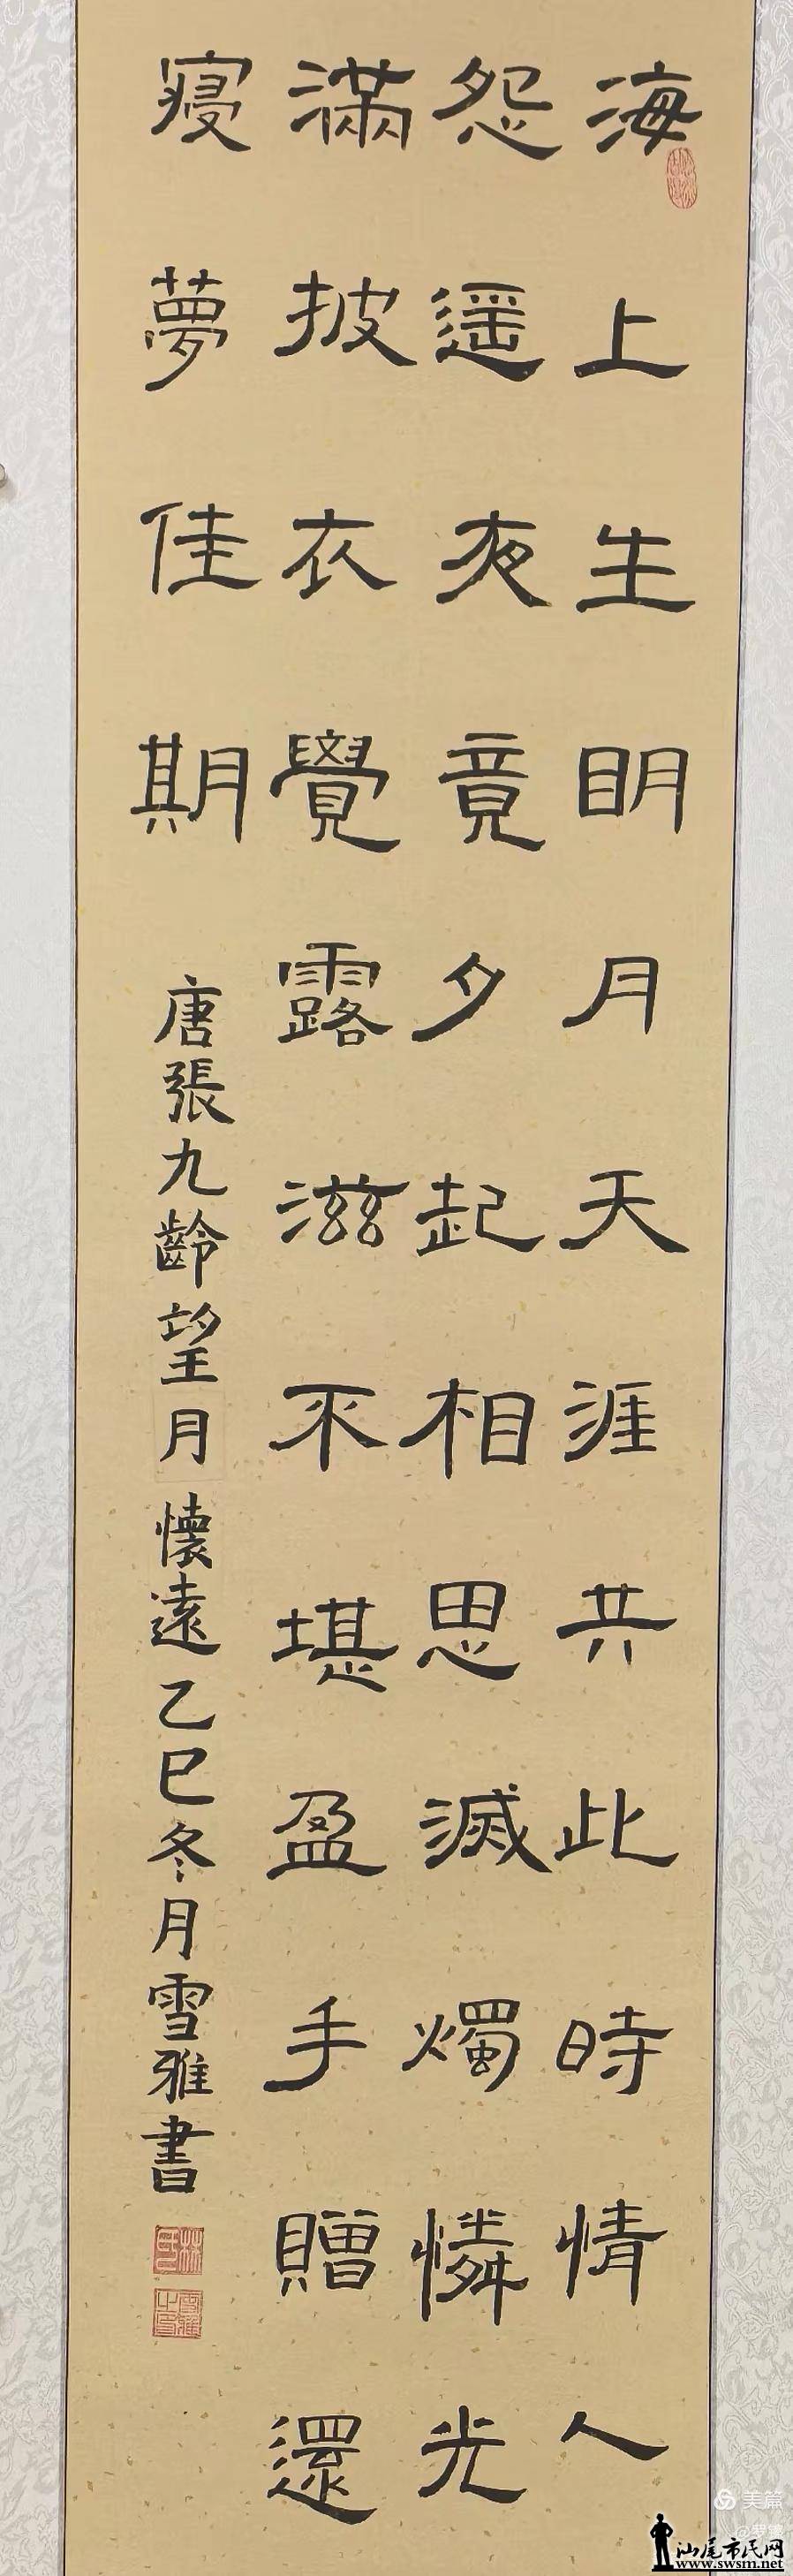 海上生眀月天涯共此時情人
怨遥夜竟夕起相思滅燭憐光
滿披衣覺露滋不堪盈手贈還
寢夢佳期
唐張九齡望月懷遠乙巳冬月雪雅書
林氏
雪雅之印
美篇
汕尾市民网
www.swsm.net